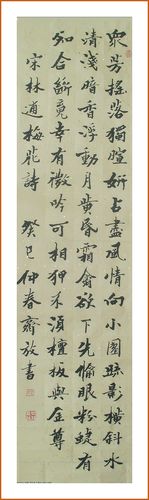 衆芳摇落獨暄妍占盡風情向小園疏影橫斜水
清淺暗香浮動月黃昏霜禽欲下先偷眼粉蝶有
知合斷魂幸有微吟可相狎不須檀板與金尊
宋林逋梅花詩 癸巳仲春齋放書